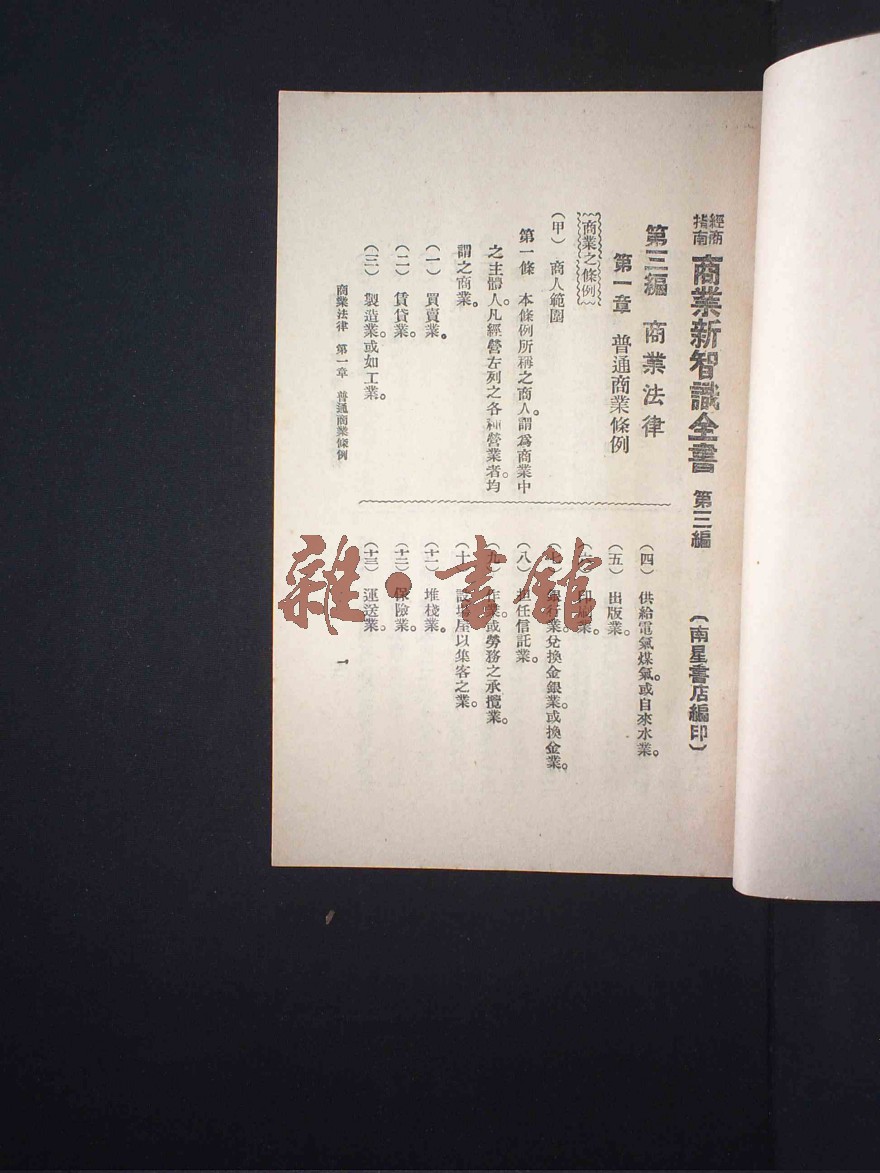 經商指南 商業新智識全書 第三編 （南星書店編印）
第三編 商業法律
第一章 普通商業條例
商業之條例
（甲） 商人範圍
第一條 本條例所稱之商人。謂爲商業中
之主體人。凡經營左列之各種營業者。均
謂之商業。
（一） 買賣業。
（二） 賃貸業。
（三） 製造業。或如工業。
（四） 供給電氣煤氣。或自來水業。
（五） 出版業。
（六） 印刷業。
（七） 銀行業兌換金銀業。或換金業。
（八） 担任信託業。
（九） 作業。或勞務之承攬業。
（十） 設場屋以集客之業。
（十一） 堆棧業。
（十二） 保險業。
（十三） 運送業。
商業法律 第一章 普通商業條例 一
雜·書館